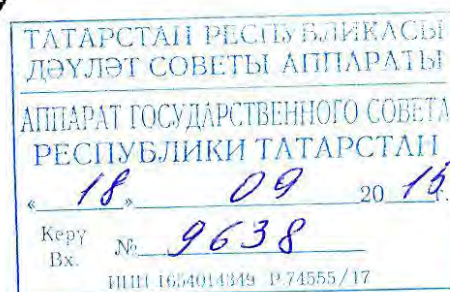 ТАТАРСТАН РЕСПУБЛИКАСЫ
ДӘҮЛӘТ СОВЕТЫ АППАРАТЫ
АППАРАТ ГОСУДАРСТВЕННОГО СОВЕТА
РЕСПУБЛИКИ ТАТАРСТАН
«18» 09 2015г.
Керү
Вх. № 9638
ИНН 1654014349 Р.74555/17